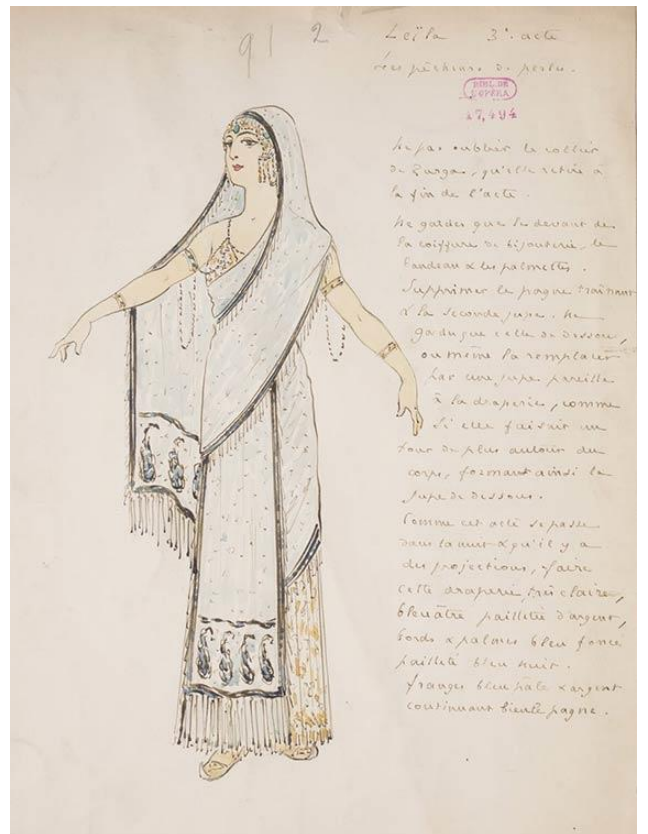 912
Leïla 3e acte
Les pêcheurs de perles.
BIBL. DE
L'OPÉRA
17,494
Ne pas oublier le collier
de Zurga, qu'elle retire à
la fin de l'acte.
Ne garder que le devant de
la coiffure de bijouterie, le
bandeau & les palmettes.
Supprimer le pagne traînant
& la seconde jupe. Ne
garder que celle de dessous,
ou même la remplacer
par une jupe pareille
à la draperie, comme
si elle faisait un
tour de plus autour du
corps, formant ainsi la
jupe de dessous.
Comme cet acte se passe
dans la nuit & qu'il y a
des projections, faire
cette draperie très claire,
bleuâtre pailletée d'argent,
bords & palmes bleu foncé
pailleté bleu nuit.
franges bleu pâle & argent
continuant le pagne.